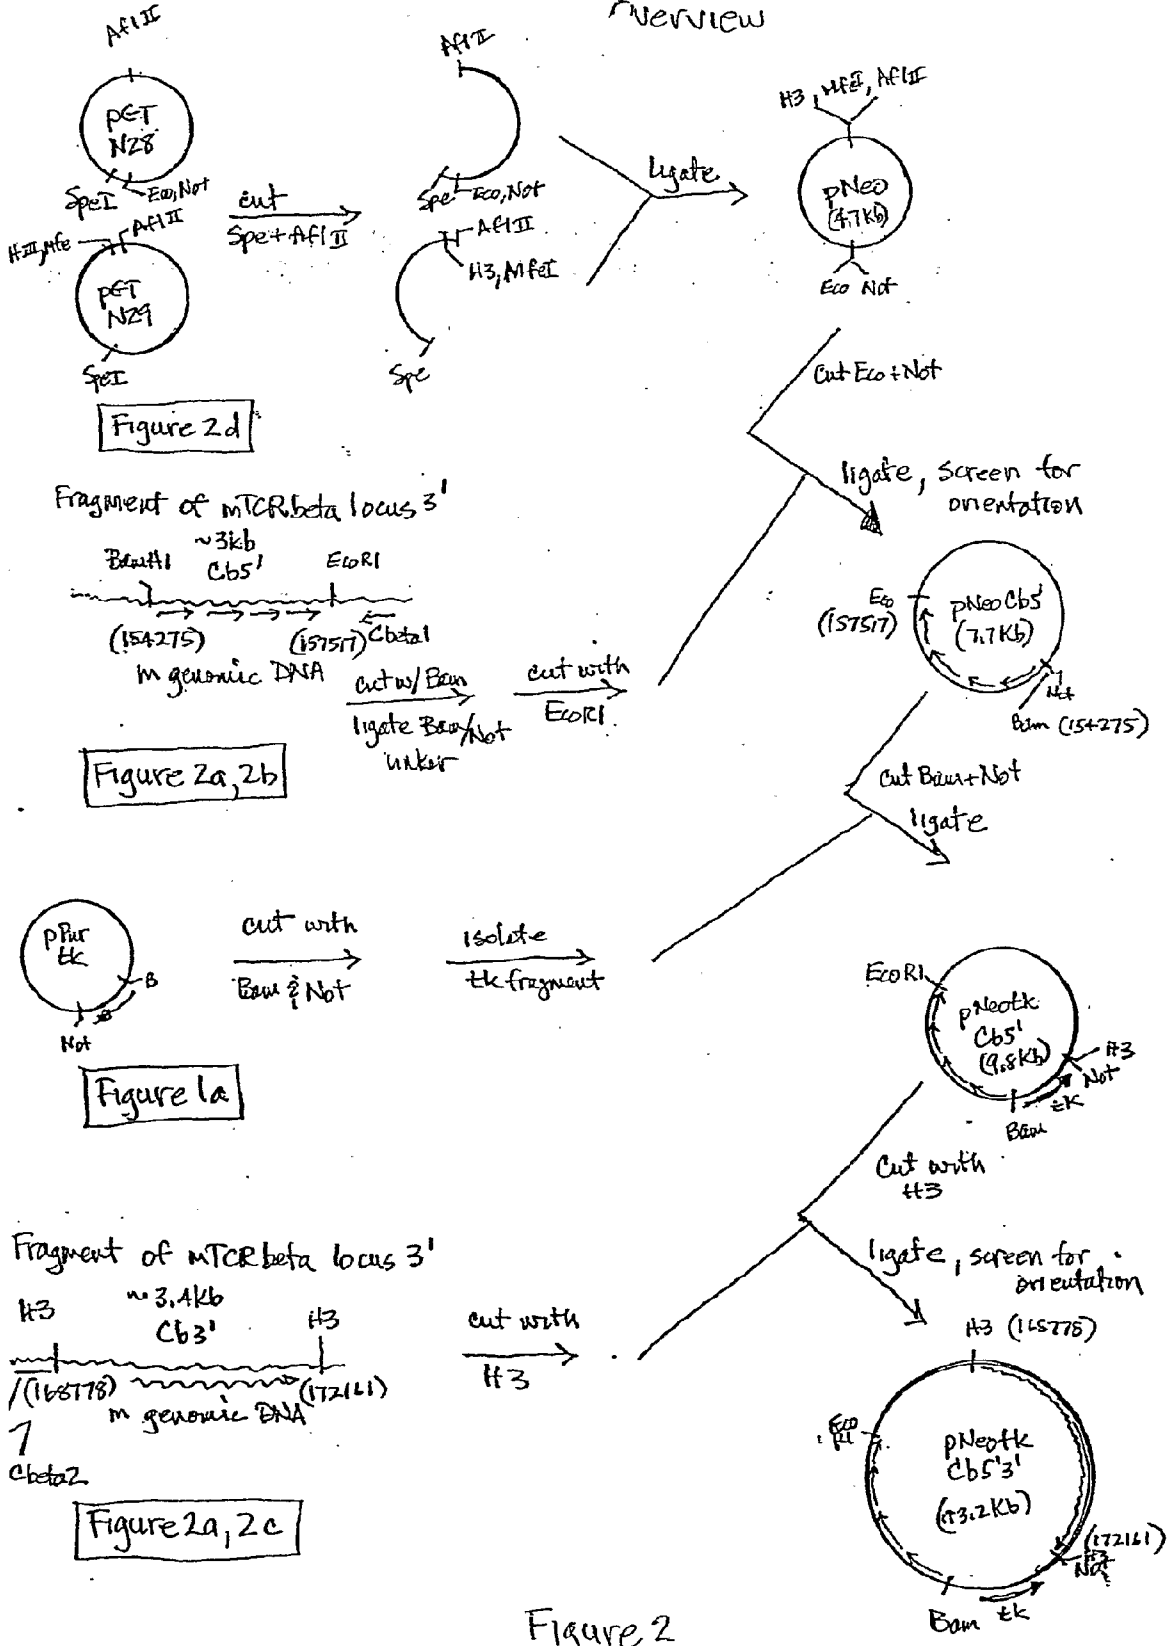 Overview
AflII
pET
N28
SpeI
Eco, Not
HIII, Mfe
AflII
pET
N29
SpeI
cut
Spe+AflII
AflII
Spe
Eco, Not
AflII
H3, MfeI
Spe
ligate
H3, MfeI, AflII
pNeo
(4.7Kb)
Eco Not
Figure 2d
cut Eco + Not
ligate, screen for
orientation
Fragment of mTCRbeta locus 3'
~3kb
BamH1
Cb5'
EcoR1
(154275)
(157517)
Cbeta1
m genomic DNA
cut w/ Bam
ligate Bam/Not
linker
cut with
EcoR1
Eco
(157517)
pNeoCb5'
(7.7Kb)
Not
Bam (154275)
Figure 2a, 2b
cut Bam+Not
ligate
pPur
tk
B
Not
cut with
Bam & Not
isolate
tk fragment
EcoR1
pNeotk
Cb5'
(9.8Kb)
H3
Not
tk
Bam
Figure 1a
cut with
H3
ligate, screen for
orientation
Fragment of mTCRbeta locus 3'
~3.4Kb
H3
Cb3'
H3
(168778)
(172161)
m genomic DNA
Cbeta2
cut with
H3
H3 (168778)
Eco
R1
pNeotk
Cb5'3'
(13.2Kb)
(172161)
H3
Not
Bam
tk
Figure 2a, 2c
Figure 2